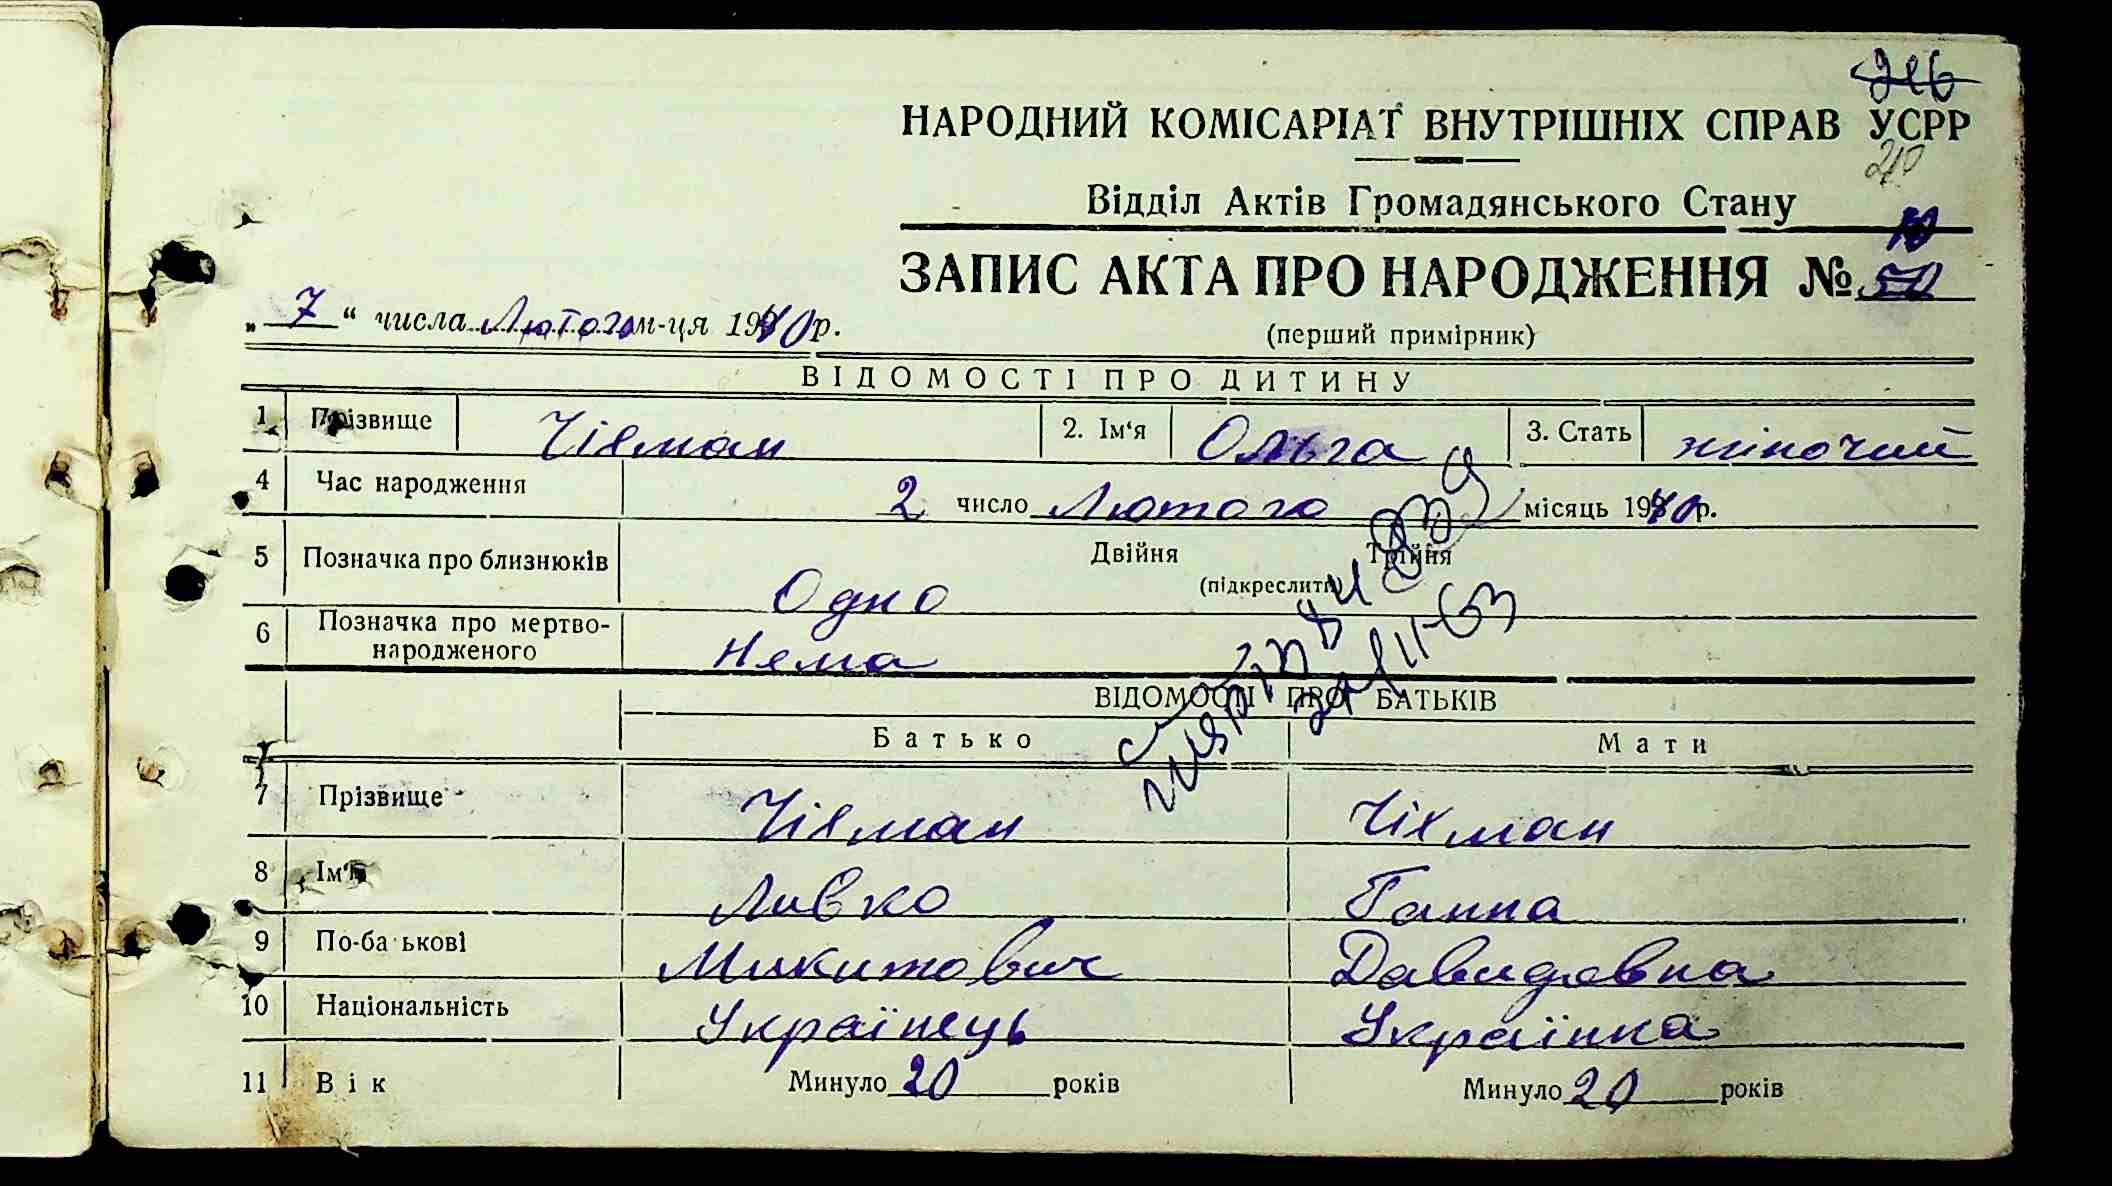 216
НАРОДНИЙ КОМІСАРІАТ ВНУТРІШНІХ СПРАВ УСРР
Відділ Актів Громадянського Стану
10
ЗАПИС АКТА ПРО НАРОДЖЕННЯ № 50
(перший примірник)
„ 7 “ числа Лютого м-ця 1940 р.
ВІДОМОСТІ ПРО ДИТИНУ
1 Прізвище Чіхман 2. Ім‘я Ольга 3. Стать жіночий
4 Час народження 2 число Лютого місяць 1940 р.
5 Позначка про близнюків Одно Двійня Трійня
(підкреслити)
6 Позначка про мертво-
народженого Нема
ВІДОМОСТІ ПРО БАТЬКІВ
Батько Мати
7 Прізвище Чіхман Чіхман
8 Ім‘я Ливко Ганна
9 По-ба ькові Микитович Давидовна
10 Національність Українець Українка
11 Вік Минуло 20 років Минуло 20 років